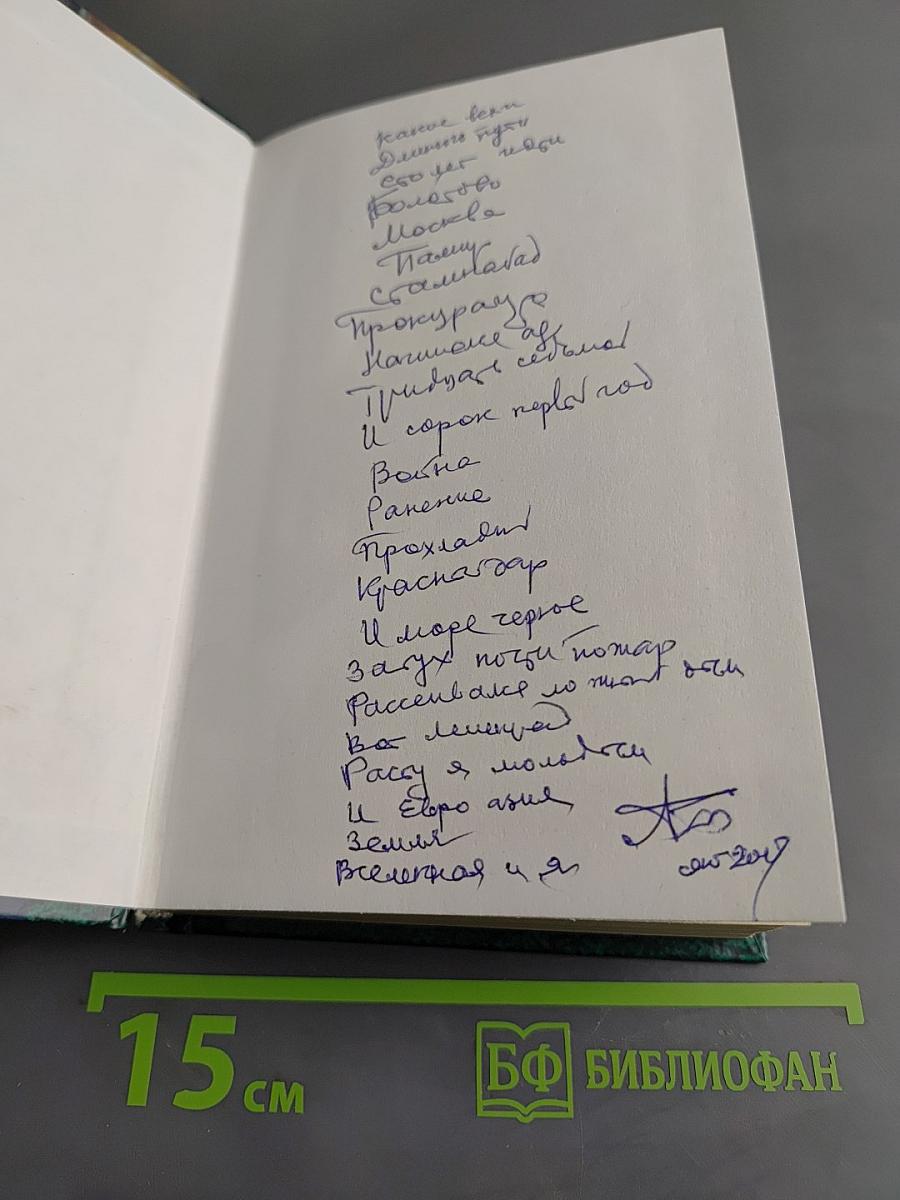 Какие вехи
Длинного пути
Сто лет идти
Болотово
Москва
Памир
Сталинабад
Прокуратура
Начинается
Тридцать седьмой
И сорок первый год
Война
Ранение
Прохладный
Краснодар
И море черное
Затух почти пожар
Рассеивался дым
Вот Ленинград
Расту я молодым
И Евро азия
Земля
Вселенная и я
2017
15 см
БФ БИБЛИОФАН